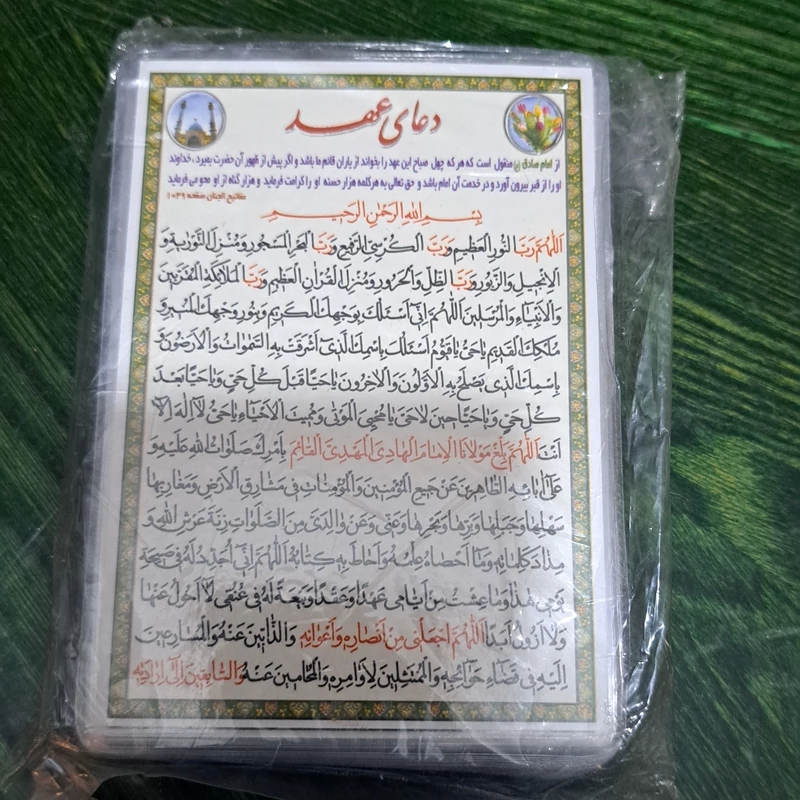 دعای عهد
از امام صادق (ع) منقول است که هر که چهل صباح این عهد را بخواند از یاران قائم ما باشد و اگر پیش از ظهور آن حضرت بمیرد ، خداوند
او را از قبر بیرون آورد و در خدمت آن امام باشد و حق تعالی به هر کلمه هزار حسنه او را کرامت فرماید و هزار گناه از او محو می فرماید
مفاتیح الجنان صفحه ۱۰۳۹
بِسْمِ اللهِ الرَّحْمٰنِ الرَّحِيمِ
اَللّٰهُمَّ رَبَّ النُّورِ الْعَظِيمِ وَ رَبَّ الْكُرْسِيِّ الرَّفِيعِ وَ رَبَّ الْبَحْرِ الْمَسْجُورِ وَ مُنْزِلَ التَّوْرٰيةِ وَ
الْاِنْجِيلِ وَ الزَّبُورِ وَ رَبَّ الظِّلِّ وَ الْحَرُورِ وَ مُنْزِلَ الْقُرْآنِ الْعَظِيمِ وَ رَبَّ الْمَلَآئِكَةِ الْمُقَرَّبِينَ
وَ الْاَنْبِيَآءِ وَ الْمُرْسَلِينَ اَللّٰهُمَّ اِنِّي اَسْئَلُكَ بِوَجْهِكَ الْكَرِيمِ وَ بِنُورِ وَجْهِكَ الْمُنِيرِ وَ
مُلْكِكَ الْقَدِيمِ يَا حَيُّ يَا قَيُّومُ اَسْئَلُكَ بِاسْمِكَ الَّذِي اَشْرَقَتْ بِهِ السَّمٰوَاتُ وَ الْاَرَضُونَ وَ
بِاسْمِكَ الَّذِي يَصْلَحُ بِهِ الْاَوَّلُونَ وَ الْاٰخِرُونَ يَا حَيًّا قَبْلَ كُلِّ حَيٍّ وَ يَا حَيًّا بَعْدَ
كُلِّ حَيٍّ وَ يَا حَيًّا حِينَ لَا حَيَّ يَا مُحْيِيَ الْمَوْتٰى وَ مُمِيتَ الْاَحْيَآءِ يَا حَيُّ لَآ اِلٰهَ اِلَّا
اَنْتَ اَللّٰهُمَّ بَلِّغْ مَوْلَانَا الْاِمَامَ الْهَادِيَ الْمَهْدِيَّ الْقَآئِمَ بِاَمْرِكَ صَلَوَاتُ اللهِ عَلَيْهِ وَ
عَلٰى اٰبَآئِهِ الطَّاهِرِينَ عَنْ جَمِيعِ الْمُؤْمِنِينَ وَ الْمُؤْمِنَاتِ فِي مَشَارِقِ الْاَرْضِ وَ مَغَارِبِهَا
سَهْلِهَا وَ جَبَلِهَا وَ بَرِّهَا وَ بَحْرِهَا وَ عَنِّي وَ عَنْ وَالِدَيَّ مِنَ الصَّلَوَاتِ زِنَةَ عَرْشِ اللهِ وَ
مِدَادَ كَلِمَاتِهِ وَ مَآ اَحْصَاهُ عِلْمُهُ وَ اَحَاطَ بِهِ كِتَابُهُ اَللّٰهُمَّ اِنِّي اُجَدِّدُ لَهُ فِي صَبِيحَةِ
يَوْمِي هٰذَا وَ مَا عِشْتُ مِنْ اَيَّامِي عَهْدًا وَ عَقْدًا وَ بَيْعَةً لَهُ فِي عُنُقِي لَآ اَحُولُ عَنْهَا
وَ لَا اَزُولُ اَبَدًا اَللّٰهُمَّ اجْعَلْنِي مِنْ اَنْصَارِهِ وَ اَعْوَانِهِ وَ الذَّآبِّينَ عَنْهُ وَ الْمُسَارِعِينَ
اِلَيْهِ فِي قَضَآءِ حَوَآئِجِهِ وَ الْمُمْتَثِلِينَ لِاَوَامِرِهِ وَ الْمُحَامِينَ عَنْهُ وَ السَّابِقِينَ اِلٰى اِرَادَتِهِ